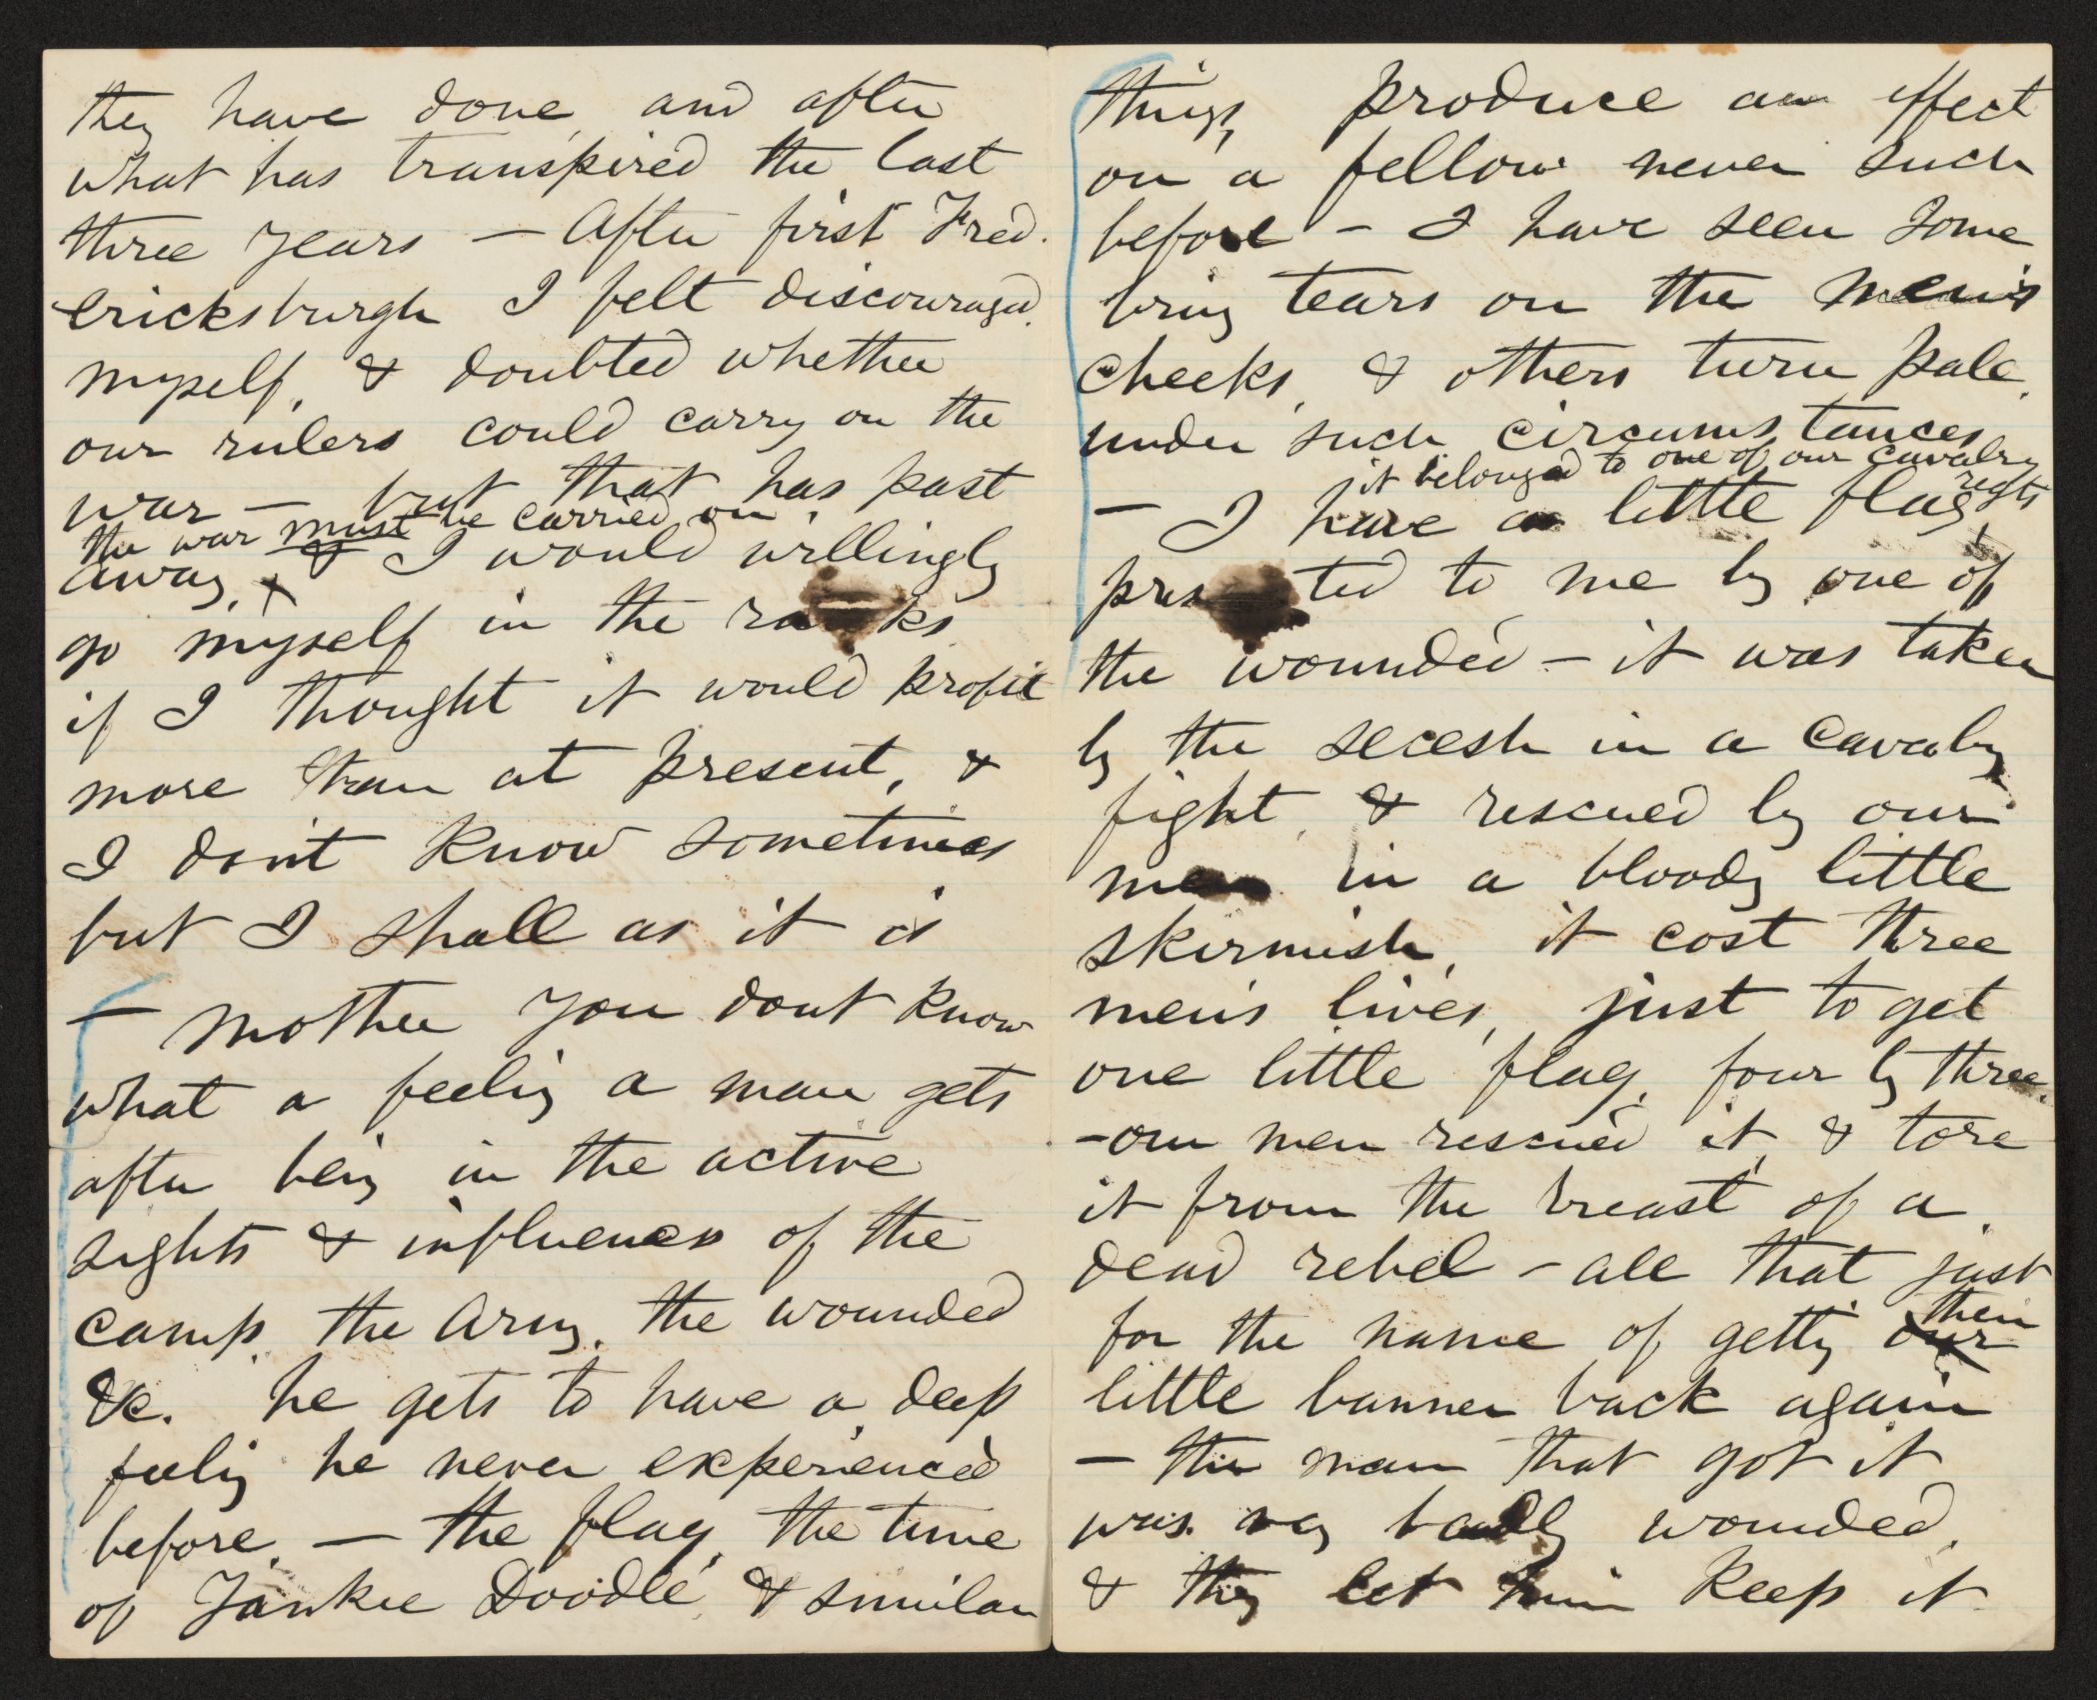 they have done, and after
what has transpired the last
three years — After first Fred-
ericksburgh I felt discouraged
myself, & doubted whether
our rulers could carry on the
war — but that has past
the war must be carried on
away, & I would willingly
go myself in the ranks
if I thought it would profit
more than at present, &
I don't know sometimes
but I shall as it is
— Mother you dont know
what a feeling a man gets
after being in the active
sights & influences of the
camp, the Army, the wounded
&c. he gets to have a deep
feeling he never experienced
before, — the flag, the tune
of Yankee Doodle, & similar
things, produce an effect
on a fellow never such
before — I have seen some
bring tears on the men's
cheeks, & others turn pale,
under such circumstances
it belonged to one of our cavalry
regts
— I have a little flag,
presented to me by one of
the wounded — it was taken
by the secesh in a cavalry
fight, & rescued by our
men in a bloody little
skirmish, it cost three
men's lives, just to get
one little flag, four by three
— our men rescued it, & tore
it from the breast of a
dead rebel — all that just
for the name of getting our
their
little banner back again
— the man that got it
was very badly wounded,
& they let him keep it